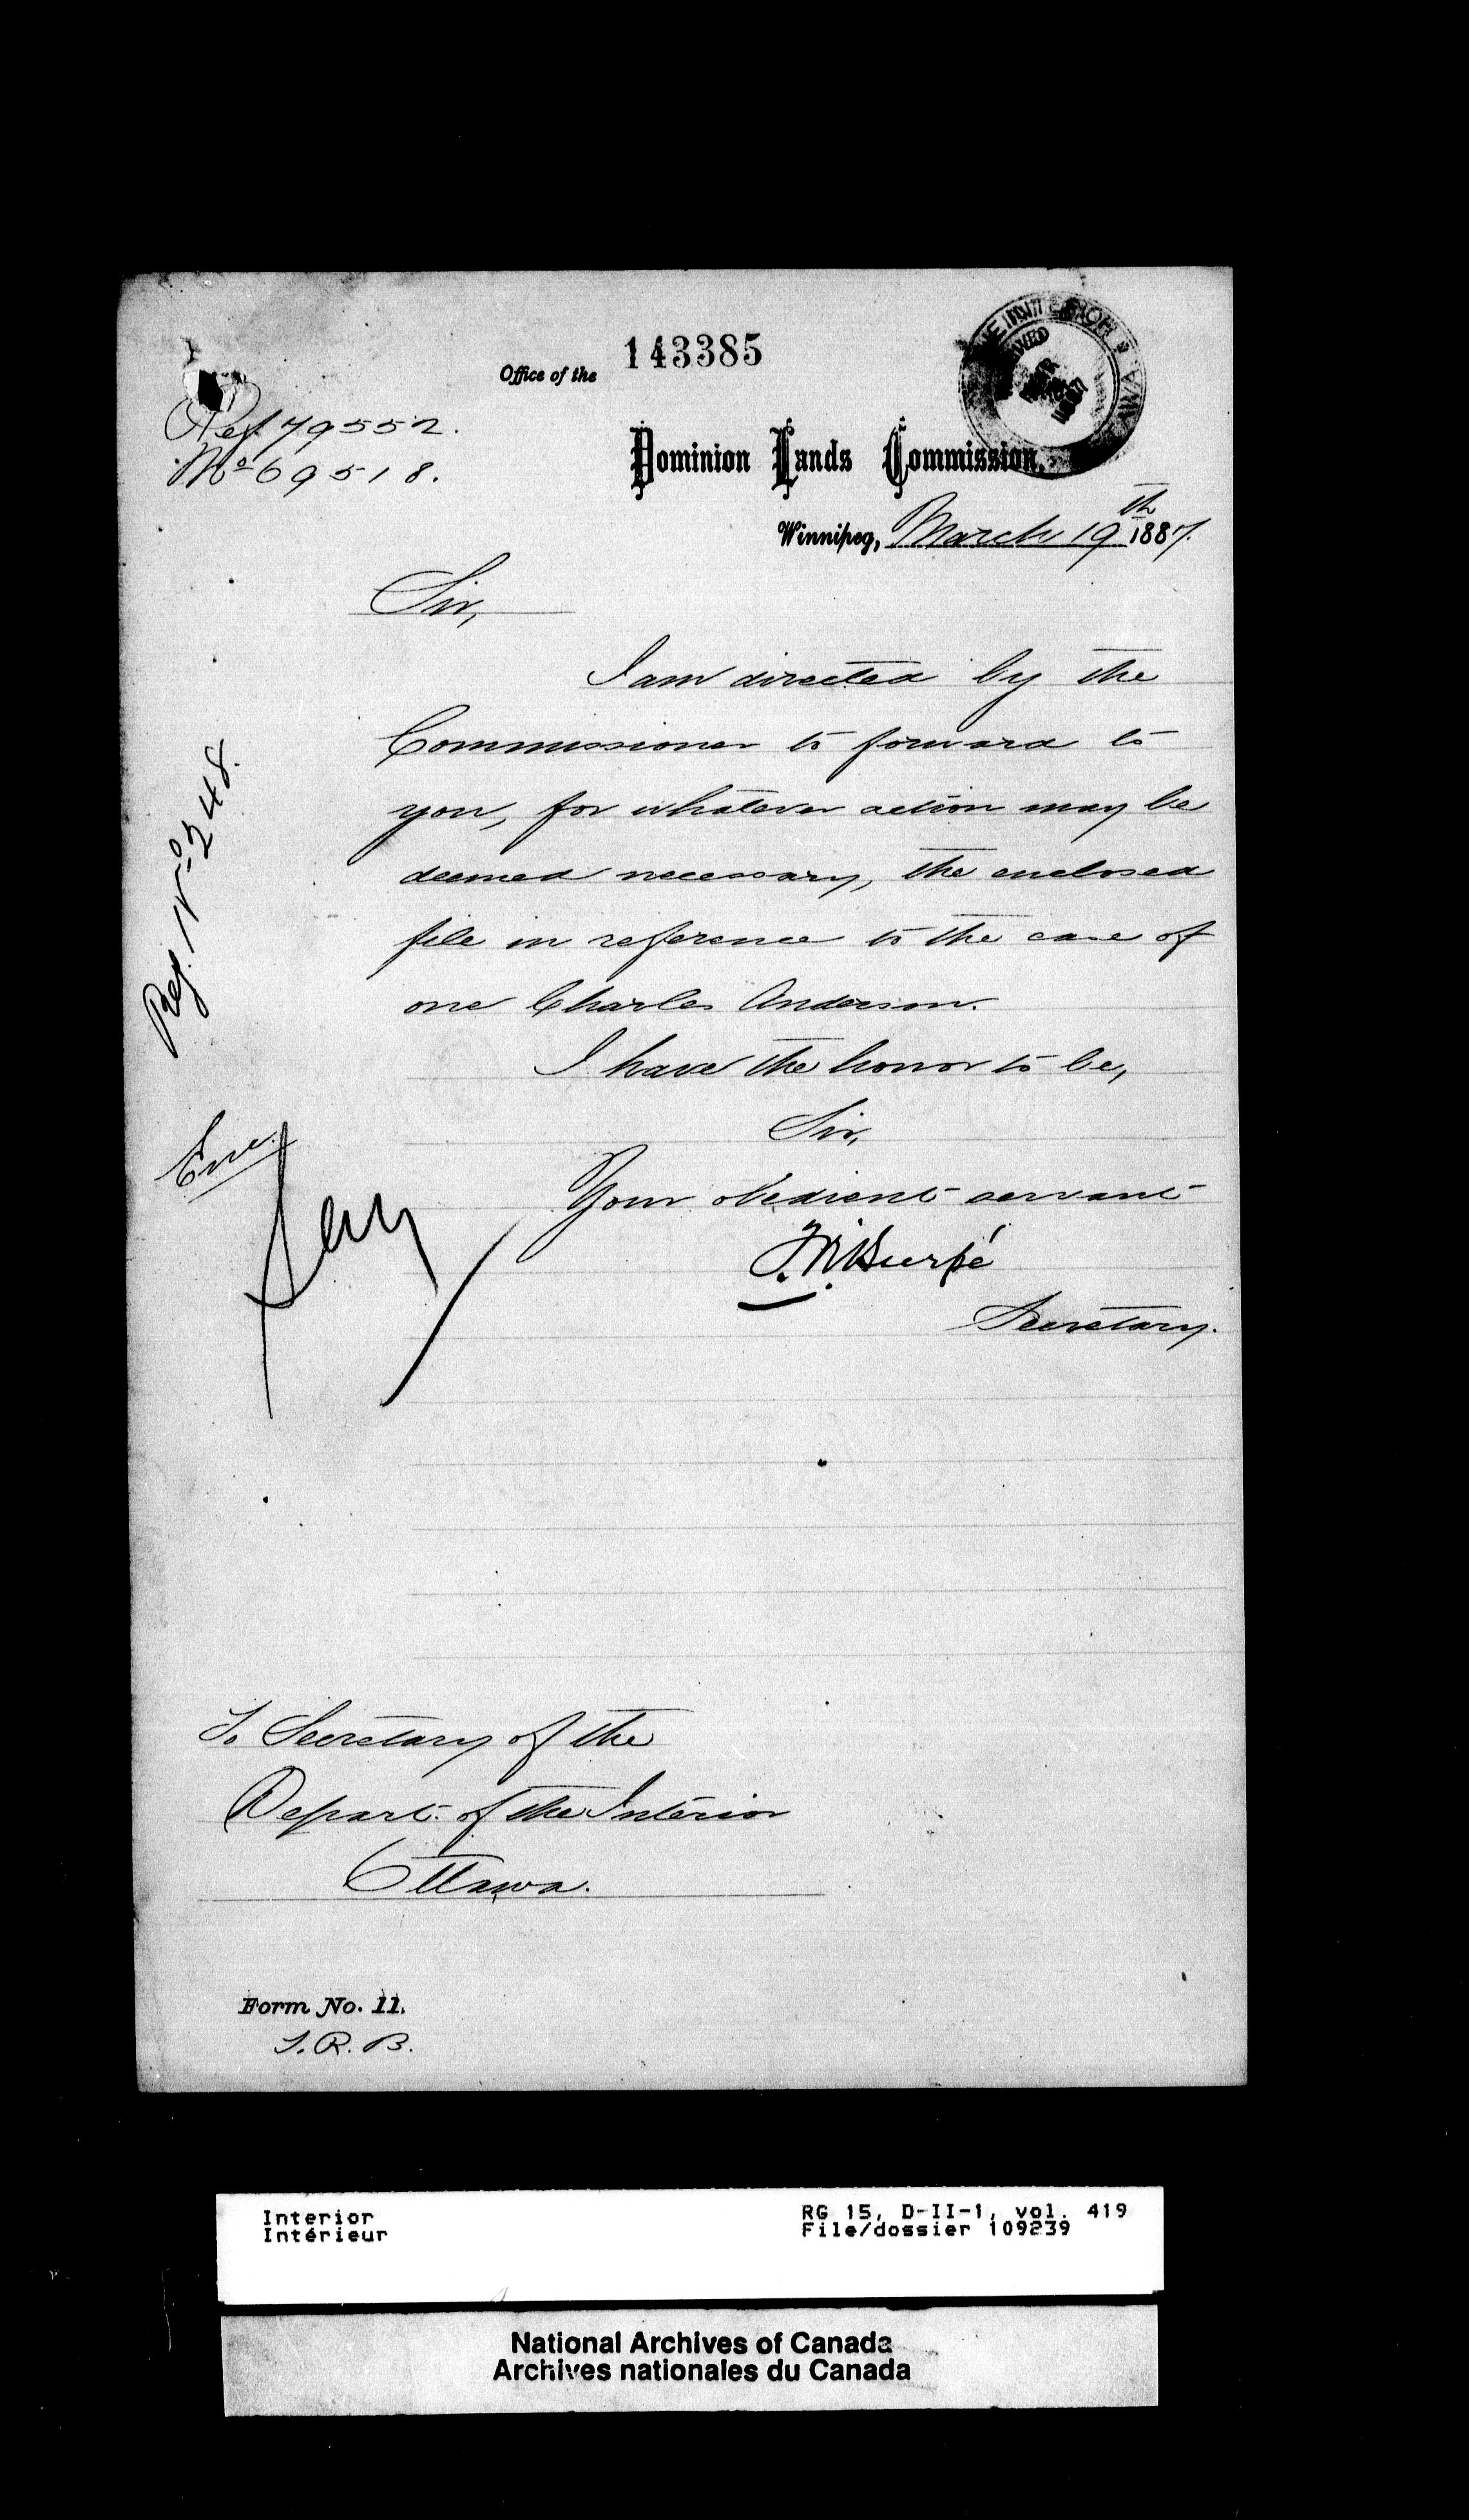 143385
Office of the
Ref 79552.
No 69518.
Dominion Lands Commission.
Winnipeg, March 19th 1887.
Sir,
I am directed by the
Commissioner to forward to
you, for whatever action may be
deemed necessary, the enclosed
file in reference to the case of
one Charles Anderson.
I have the honor to be,
Sir,
Your obedient servant
Secretary.
Reg. No 248.
To Secretary of the
Depart. of the Interior
Ottawa.
Form No. 11.
Interior
Intérieur
RG 15, D-II-1, vol. 419
File/dossier 109239
National Archives of Canada
Archives nationales du Canada